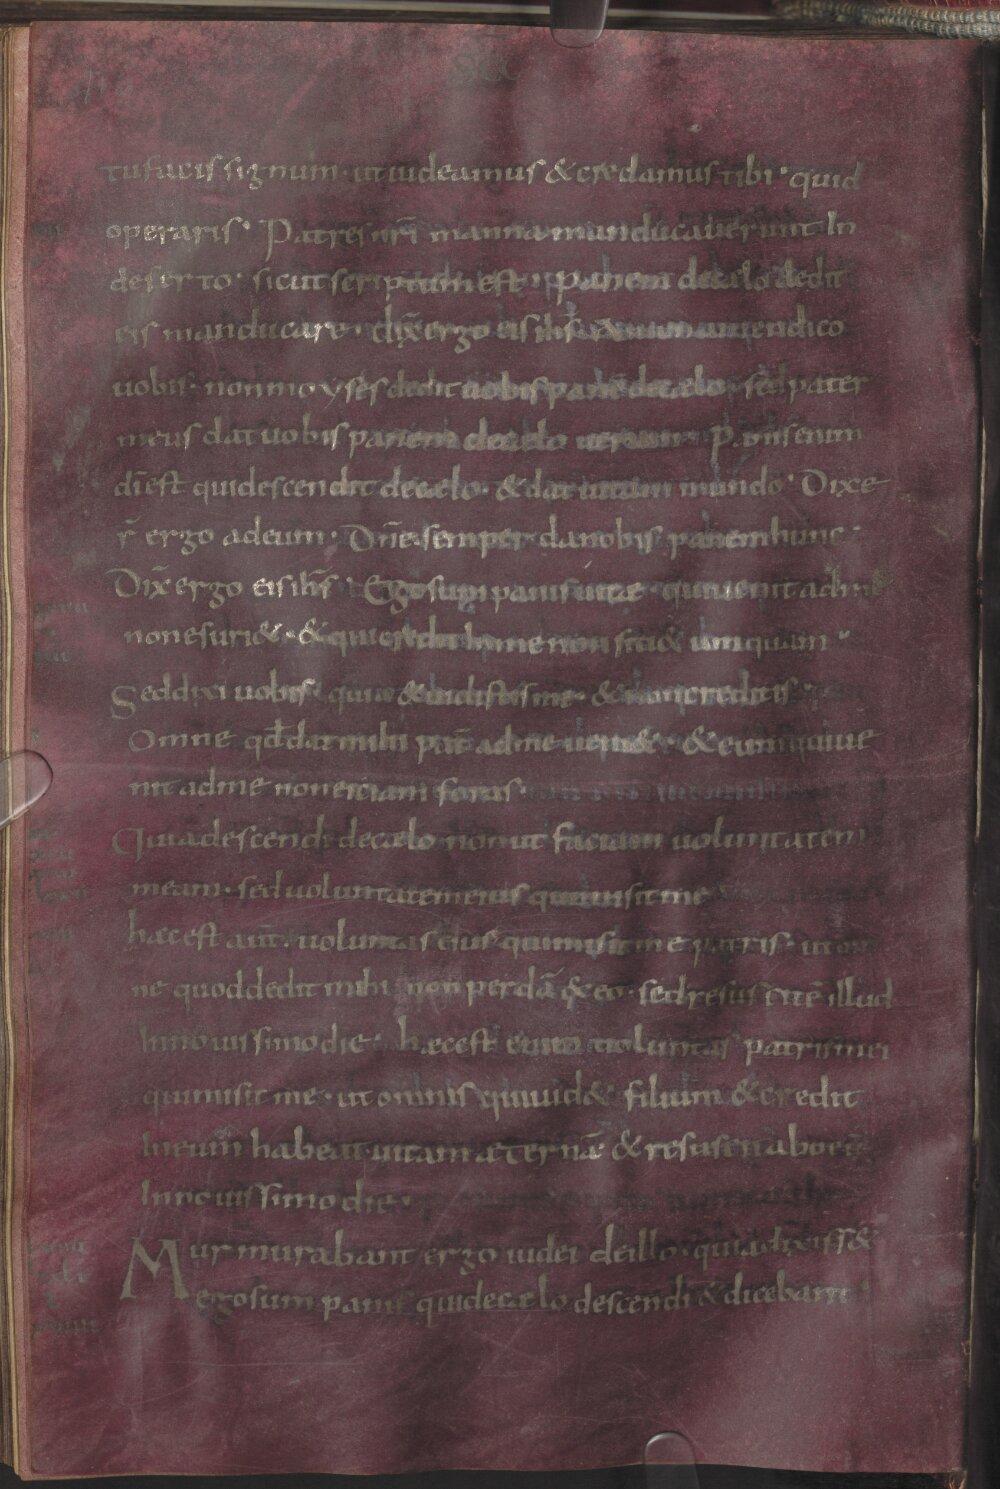 tu facis signum · ut uideamus & credamus tibi · quid
operaris · Patres nr̄i manna manducauerunt In
deserto · sicut scriptum est · Panem de cælo dedit
eis manducare · dix̄ ergo eis ih̄s · Amen amen dico
uobis · non moyses dedit uobis panē de cælo · sed pater
meus dat uobis panem de cælo uerum · Panis enim
dī est qui descendit de cælo · & dat uitam mundo · Dixe
r̄ ergo ad eum · Dn̄e semper da nobis panem hunc ·
Dix̄ ergo eis ih̄s · Ego sum panis uitæ · qui uenit ad me
non esuri& · & qui credit In me non siti& umquam ·
Sed dixi uobis quia & uidistis me · & non creditis ·
Omne qd̄ dat mihi pat̄ ad me ueni& · & eum qui ue
nit ad me non eiciam foras ·
Quia descendi de cælo non ut faciam uoluntatem
meam · sed uoluntatem eius qui misit me
hæc est aut̄ · uoluntas eius qui misit me patris · ut om
ne quod dedit mihi non perdā & eo · sed resuscitē illud
In nouissimo die · hæc est enim uoluntas patris mei
qui misit me · ut omnis qui uid& filium & credit
In eum habeat uitam æternā & resuscitabo eū
In nouissimo die ·
Murmurabant ergo iudei de illo · quia dixiss&
ego sum panis qui de cælo descendi & dicebant